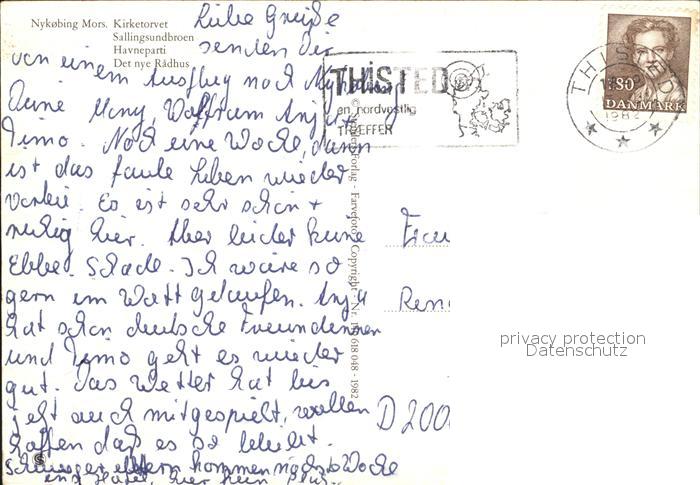 Nykøbing Mors. Kirketorvet
Sallingsundbroen
Havneparti
Det nye Rådhus
Liebe Grüße
senden Dir
von einem Ausflug nach
Deine Wolfram Anja +
Timo. Noch eine Woche, dann
ist das faule Leben wieder
vorbei. Es ist sehr schön +
ruhig hier. Aber leider keine
Ebbe. Schade. Ich wäre so
gern im Watt gelaufen. Anja
hat schon deutsche Freundinnen
und Timo geht es wieder
gut. Das Wetter hat bis
jetzt auch mitgespielt, wollen
hoffen daß es so bleibt.
Schwiegereltern kommen nächste Woche
THiSTED
en nordvestlig
TRÆFFER
THISTED
1982
180
DANMARK
Forlag - Farvefoto Copyright - Nr. 618 048 - 1982
Frau
D 200
privacy protection
Datenschutz